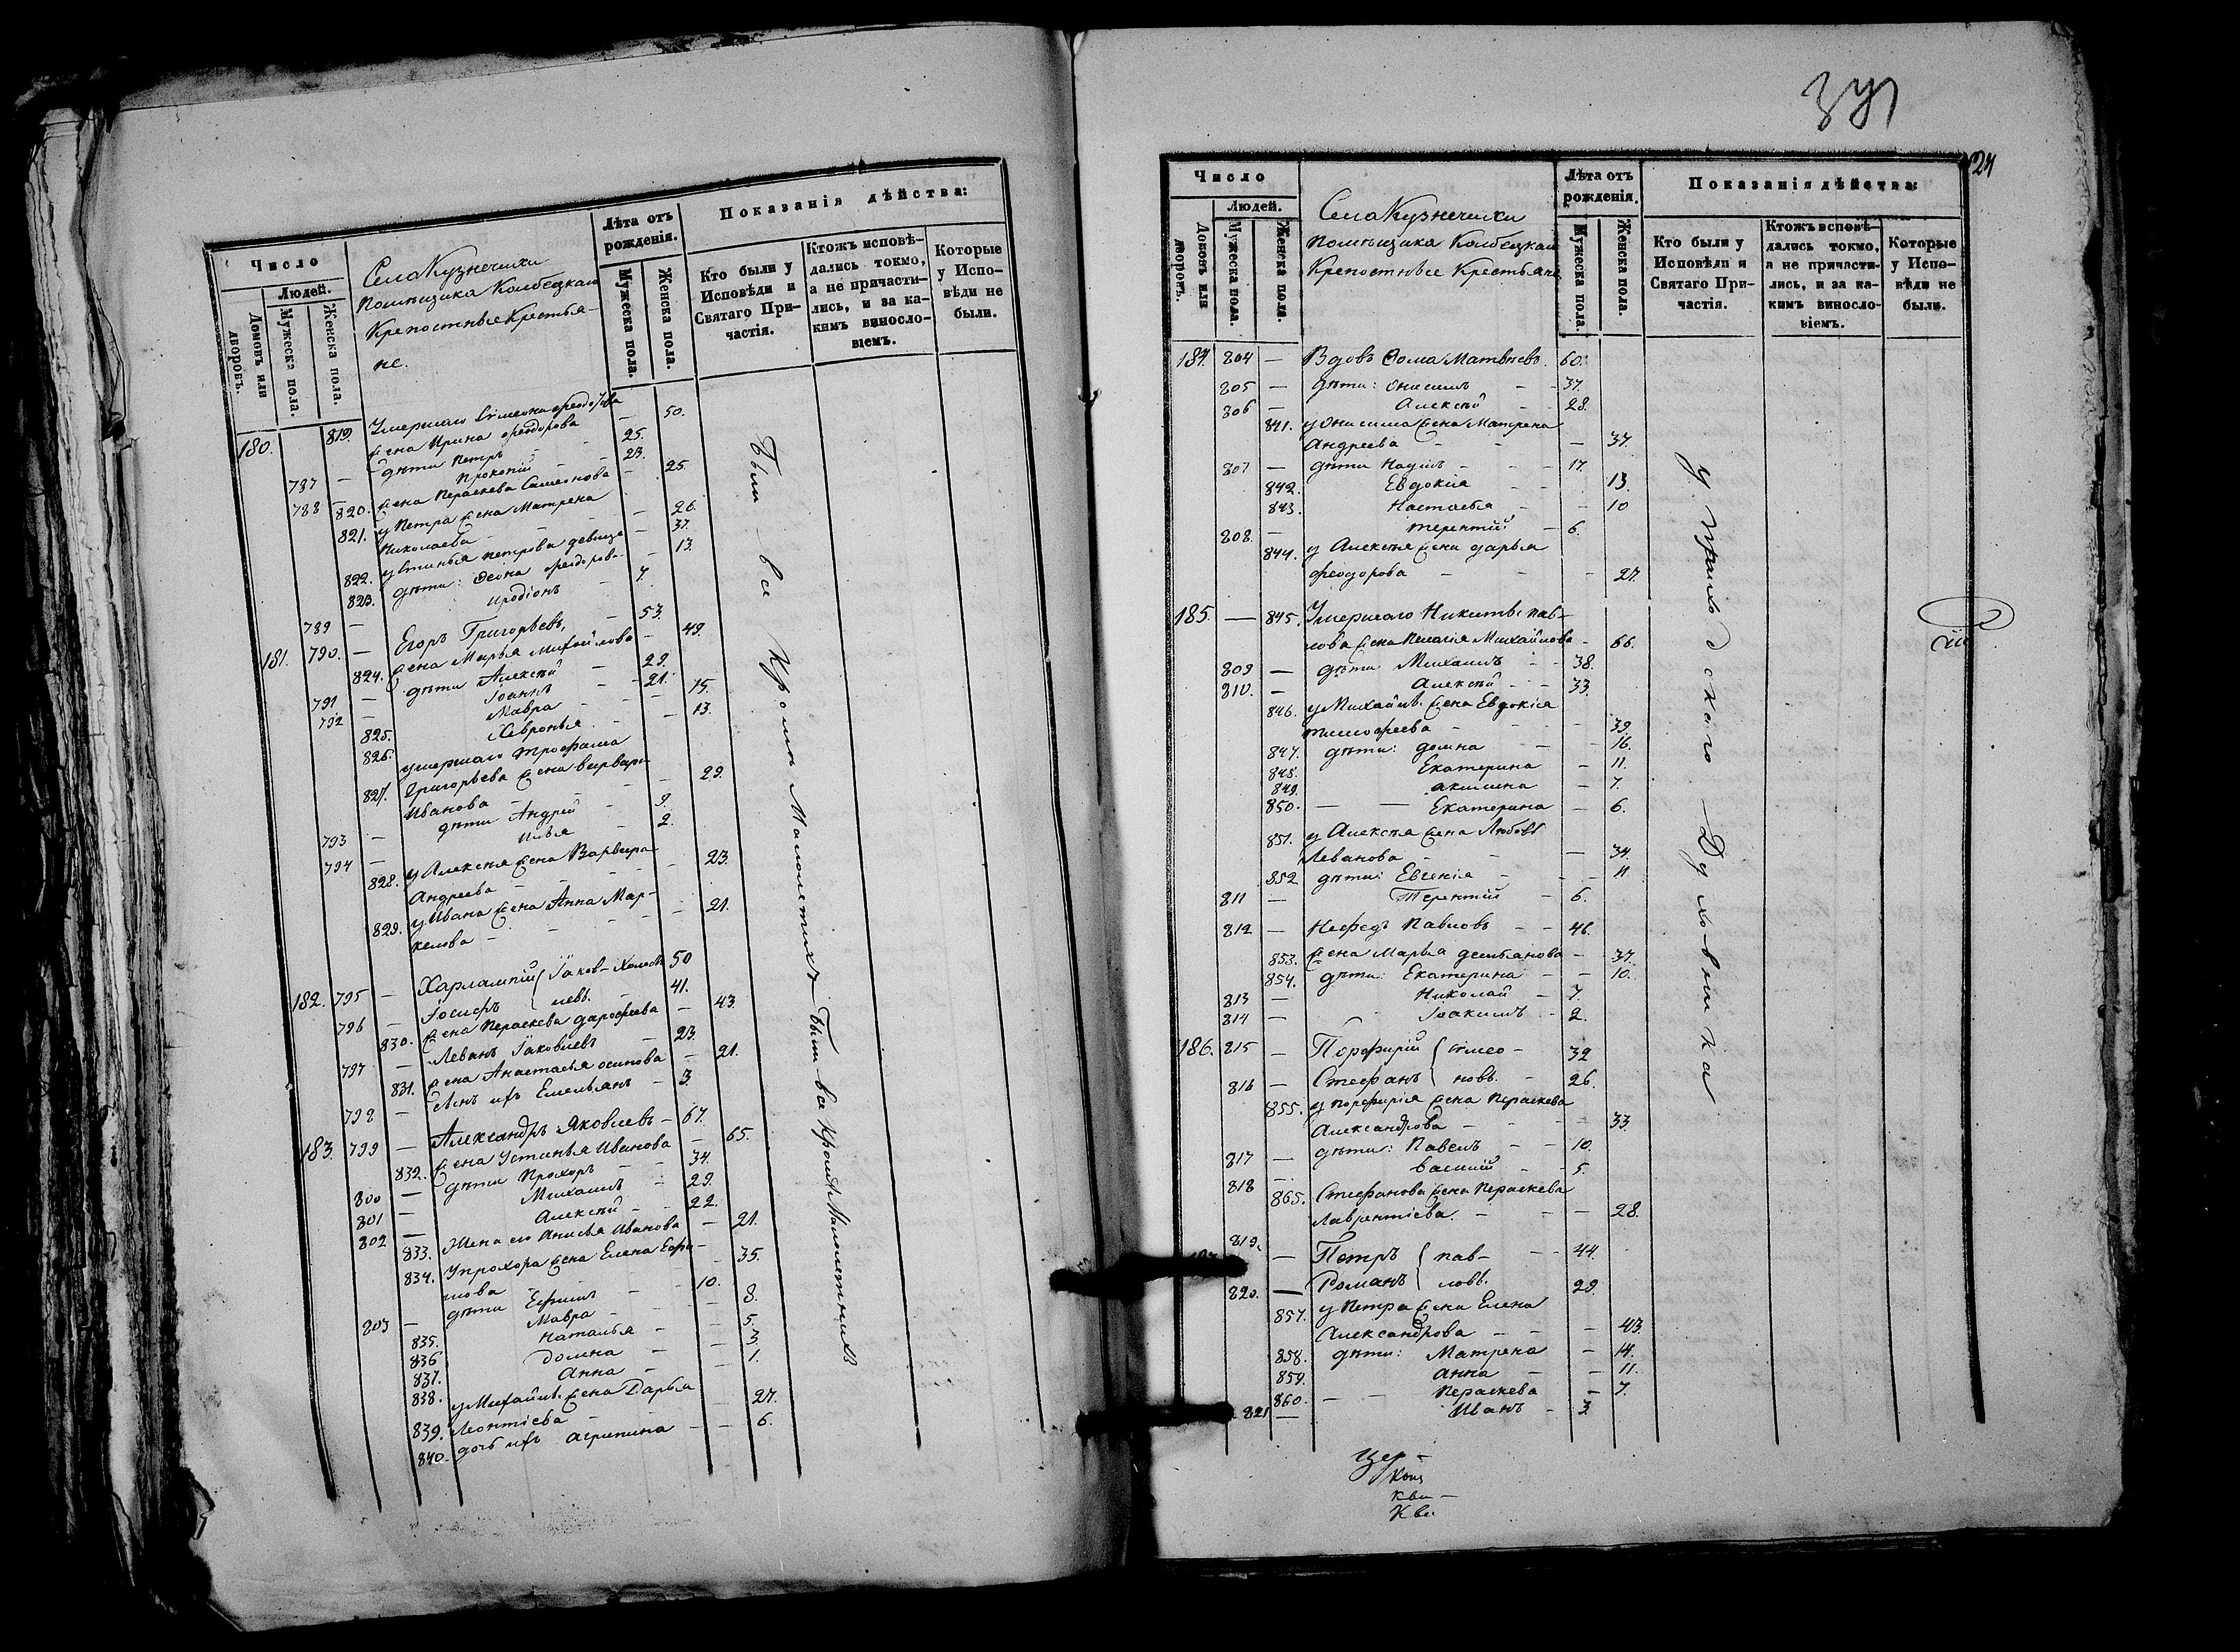 Число
Людей.
Домовъ или дворовъ.
Мужеска пола.
Женска пола.
Села Кузнечихи
помѣщика Колбецкаго
Крепостные Крестья-
не.
Лѣта отъ рожденія.
Мужеска пола.
Женска пола.
Показанія дѣйства:
Кто были у Исповѣди и Святаго Причастія.
Ктожъ исповѣ-
дались токмо,
а не причасти-
лись, и за ка-
кимъ винословіемъ.
Которые у Испо-
вѣди не были.
180. 819. Умершаго Симеона Феодорова
жена Ирина Феодорова — 50.
787 — дѣти Петръ — 25.
788 — Прокопій — 23.
820. жена Параскева Симеонова — 25.
821. у Петра жена Матрена
Николаева — 26.
822. Устинья Петрова девица — 37.
823. дѣти: Феона Феодорова — 13.
789 — Иродіонъ — 7.
181. 790. — Егоръ Григорьевъ, — 53.
824. жена Марья Михайлова — 49.
791 — дѣти Алексѣй — 29.
792 — Іоаннъ — 21.
825. Мавра — 15.
826. Хавронья — 13.
умершаго Трофима
827. Григорьева жена Варвара
Иванова — 29.
793 — дѣти Андрей — 9.
794 — Илья — 2.
828. у Алексѣя жена Варвара
Андреева — 23.
829. у Ивана жена Анна Мар-
келова — 21.
182. 795 — Харлампій Іаков- 50
796 — Іосифъ левы. — 41.
830. жена Параскева Дарофеева — 43.
797 — Леванъ Іаковлевъ — 23.
831. жена Анастасья Осипова — 21.
798 — сынъ ихъ Емельянъ — 3.
183. 799 — Александръ Яковлевъ — 67.
832. жена Устинья Иванова — 65.
800 — дѣти Прохоръ — 34.
801 — Михаилъ — 29.
802 — Алексѣй — 22.
833. Жена его Анисья Иванова — 21.
834. У прохора жена Елена Ефи-
мова — 35.
803 — дѣти Ефимъ — 10.
835. Мавра — 8.
836 Наталья — 5.
837. Домна — 3
838. Анна — 1.
839. у Михайлы жена Дарья
Леонтіева — 27.
840. дочь ихъ Агрипина — 6.
Были все Кроме Малолетнихъ Были все Кроме Малолетнихъ
Число
Людей.
Домовъ или дворовъ.
Мужеска пола.
Женска пола.
Села Кузнечихи
помѣщика Колбецкаго
Крепостные Крестьяне
Лѣта отъ рожденія.
Мужеска пола.
Женска пола.
Показанія дѣйства:
Кто были у Исповѣди и Святаго Причастія.
Ктожъ исповѣ-
дались токмо,
а не причасти-
лись, и за ка-
кимъ винословіемъ.
Которые у Испо-
вѣди не были.
184. 804 — Вдовъ Фома Матвѣевъ. 60.
805 — дѣти: Онисимъ — 37.
806 — Алексѣй — 28.
841. у Онисима жена Матрена
Андреева — 37.
807 — дѣти Наумъ — 17.
842. Евдокія — 13.
843. Настасья — 10
808. — Терентій — 6.
844. у Алексѣя жена Дарья
Феодорова — 27.
185. — 845. Умершаго Никиты Пав-
лова жена Пелагія Михайлова — 66.
809 — дѣти Михаилъ — 38.
810. — Алексѣй — 33.
846. у Михайлы жена Евдокія
Тимофеева — 39.
847. дѣти: Домна — 16.
848. Екатерина — 11.
849. Акилина — 7.
850. — Екатерина — 6.
851. у Алексѣя жена Любовь
Леванова — 34.
852 дѣти: Евгенія — 11
811 — Терентій — 6.
812 — Нефедъ Павловъ — 46.
853. жена Марья Демьянова — 37.
854. дѣти: Екатерина — 10.
813 — Николай — 7.
814 — Іоакимъ — 2.
186. 815 — Порфирій Симео- 32
816 — Стефанъ новы. — 26.
855. у Порфирія жена Параскева
Александрова — 33
817 — дѣти: Павелъ — 10.
818 — Василій — 5.
865. Стефанова жена Параскева
Лаврентіева. — 28.
819. — Петръ Пав- — 44.
820. — Романъ ловы. 29.
857. у Петра жена Елена
Александрова — 43.
858. дѣти: Матрена — 14.
859. Анна — 11.
860. — Параскева — 7.
821 — Иванъ — 3
у Приходскаго Духовника
Цер-